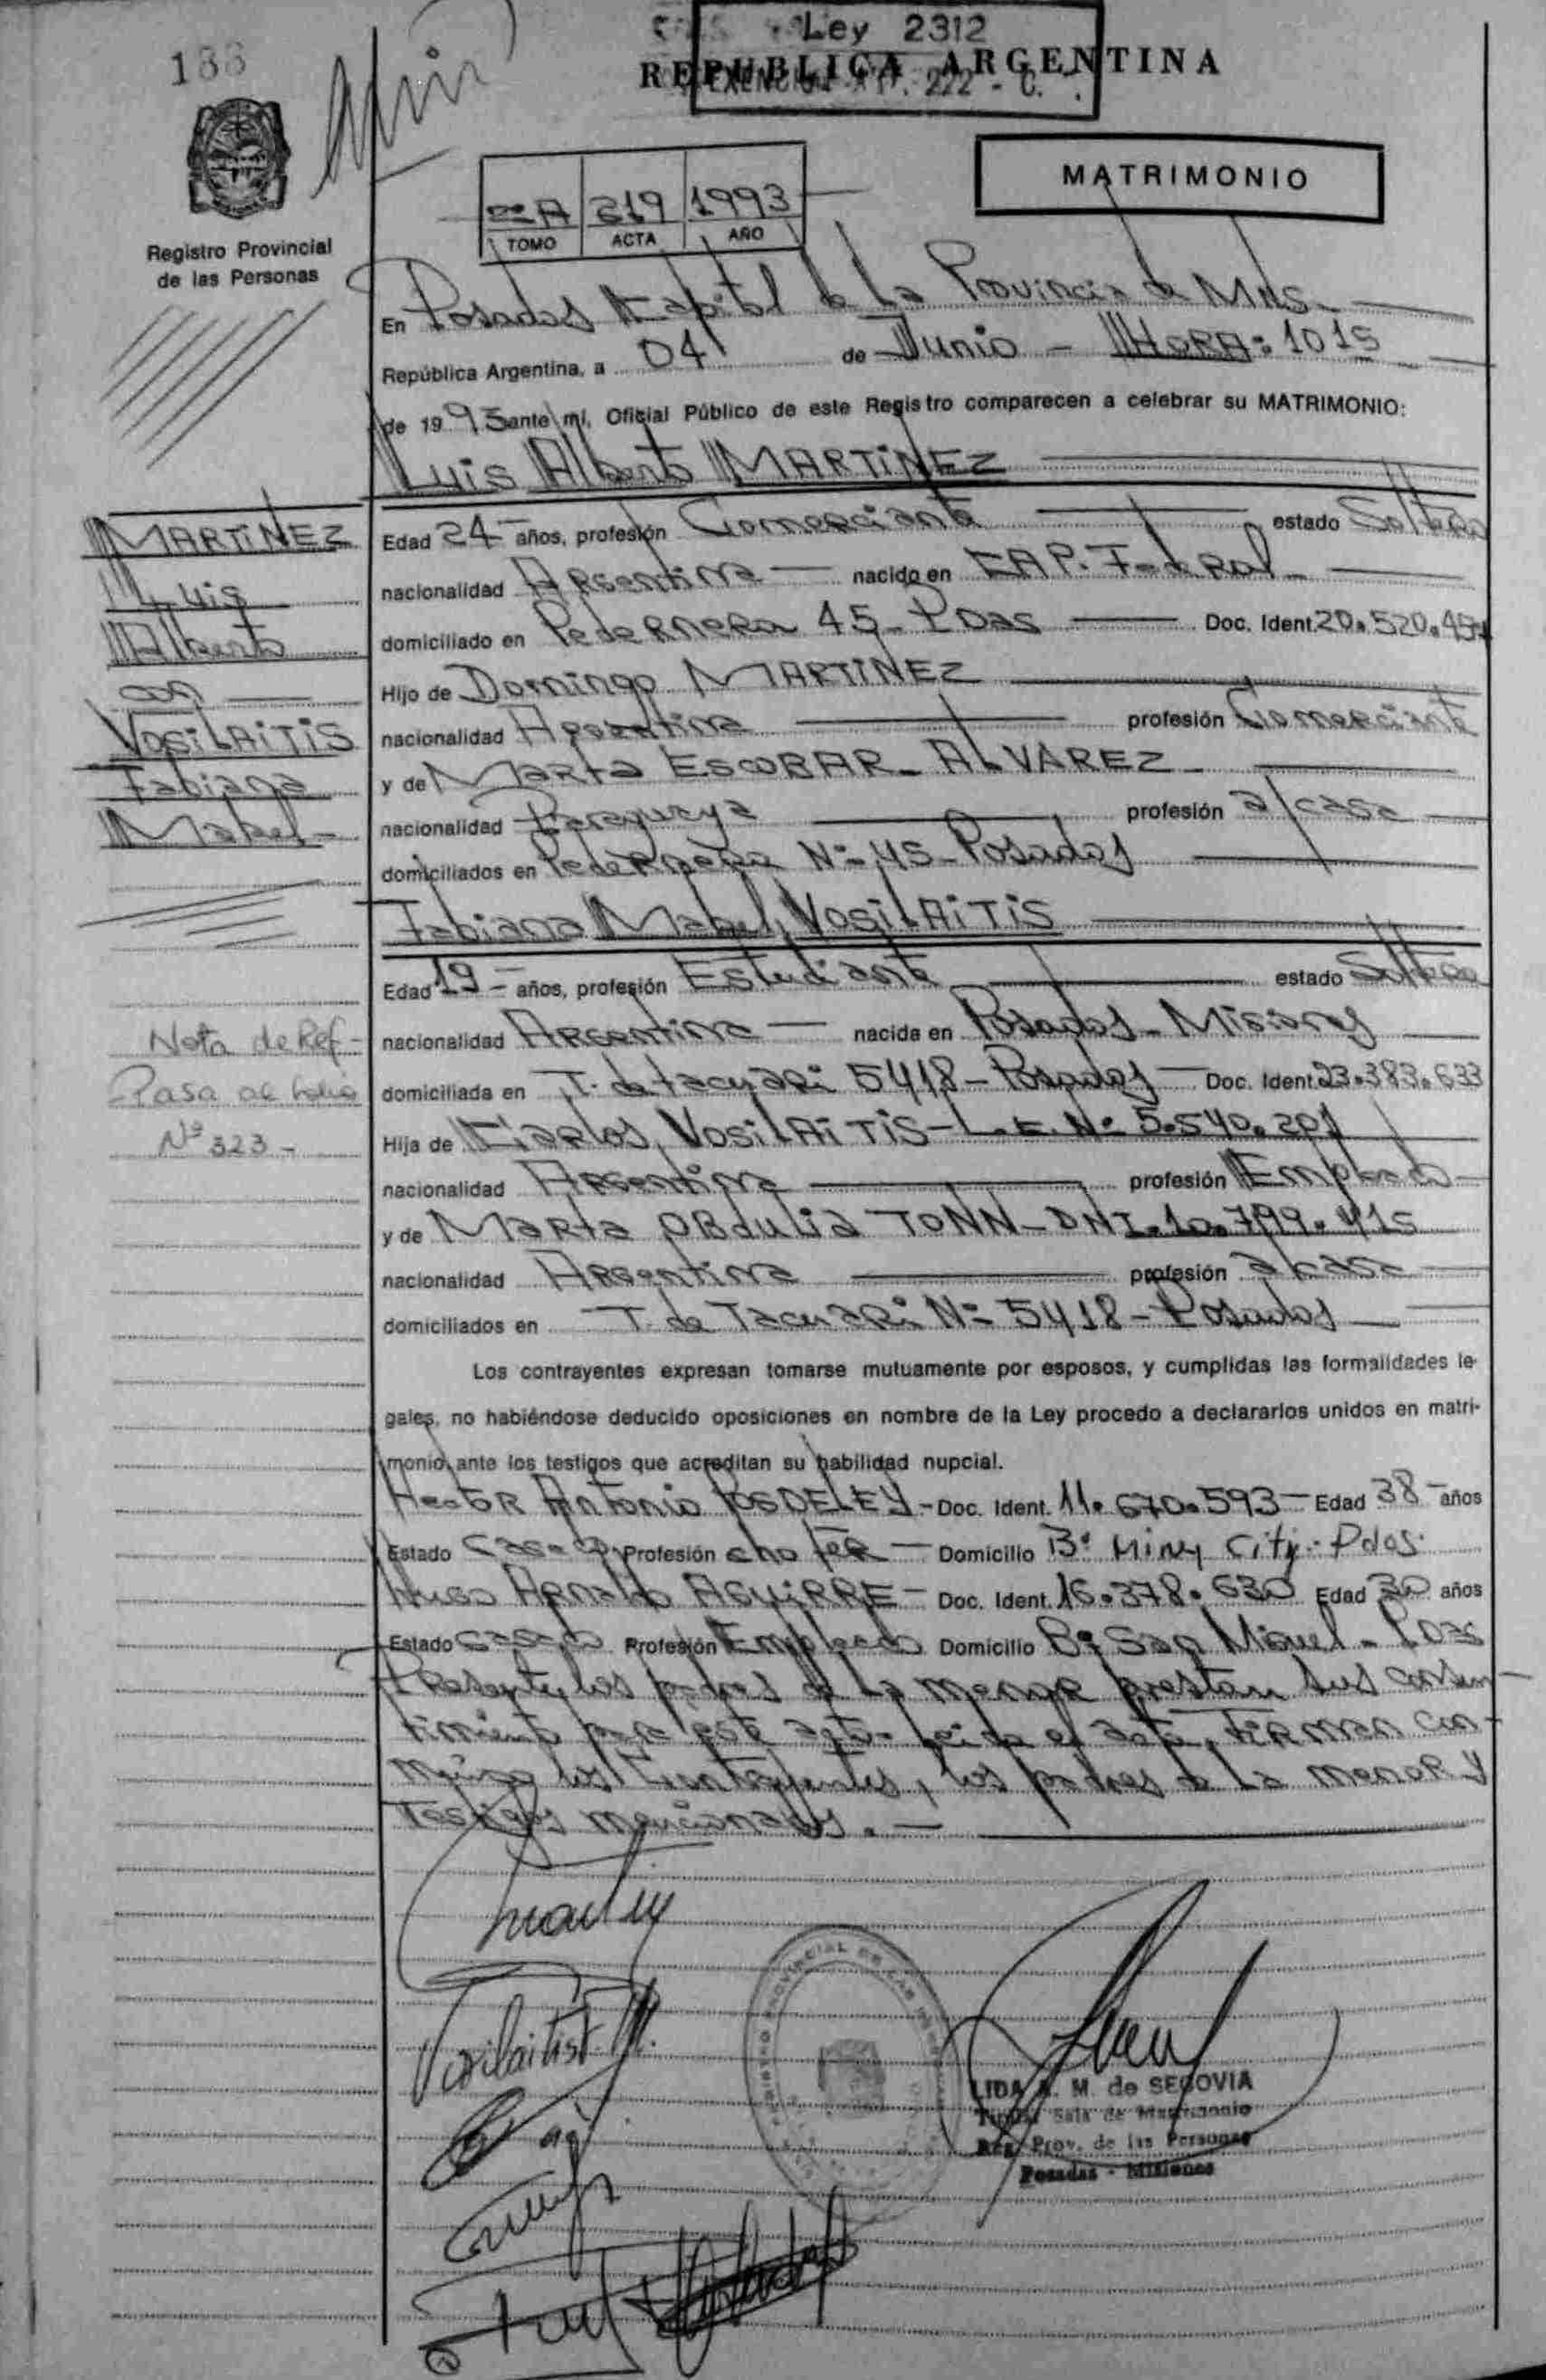 188
Ley 2312
REPUBLICA ARGENTINA
EXENCION ART. 222 - C.
MATRIMONIO
2º A 219 1993
TOMO ACTA AÑO
Registro Provincial
de las Personas
En Posadas Capital de la Provincia de Mnes.
República Argentina, a 04 de Junio - HORA: 1015
de 1993 ante mí, Oficial Público de este Registro comparecen a celebrar su MATRIMONIO:
Luis Alberto MARTINEZ
MARTINEZ
Luis
Alberto
con
VOSILAITIS
Fabiana
Mabel-
Edad 24 años, profesión Comerciante estado Soltero
nacionalidad Argentina nacido en CAP. Federal
domiciliado en Pedernera 45 - Pdas Doc. Ident. 20.520.
Hijo de Domingo MARTINEZ
nacionalidad Argentina profesión Comerciante
y de Marta ESCOBAR - ALVAREZ
nacionalidad Paraguaya profesión a/casa
domiciliados en Pedernera Nº 45 - Posadas
Fabiana Mabel VOSILAITIS
Edad 19 años, profesión Estudiante estado Soltera
nacionalidad Argentina nacida en Posadas - Misiones
domiciliada en T. de Tacuari 5418 - Posadas Doc. Ident. 23.383.633
Hija de Carlos VOSILAITIS - L.E. Nº 5.540.201
nacionalidad Argentina profesión Empleado
y de Marta OBdulia TONN - DNI. 10.799.415
nacionalidad Argentina profesión a/casa
domiciliados en T. de Tacuari Nº 5418 - Posadas
Nota de Ref-
Pasa al folio
Nº 323-
Los contrayentes expresan tomarse mutuamente por esposos, y cumplidas las formalidades le-
gales, no habiéndose deducido oposiciones en nombre de la Ley procedo a declararlos unidos en matri-
monio, ante los testigos que acreditan su habilidad nupcial.
Hector Antonio POSDELEY - Doc. Ident. 11.670.593 - Edad 38 años
Estado Casado Profesión chofer - Domicilio Bº Miny City - Pdas.
Hugo Arnaldo AGUIRRE - Doc. Ident. 16.378.630 Edad 30 años
Estado Casado Profesión Empleado Domicilio Bº San Miguel - Pdas
Presentes los padres de la menor prestan sus consen-
timiento para este acto. Leida el acta, firman con-
migo los Contrayentes, los padres de la menor y
Testigos mencionados.
Vosilaitis F. M.
REGISTRO PROVINCIAL DE LAS PERSONAS
LIDA M. de SEGOVIA
Titular Sala de Matrimonio
Reg. Prov. de las Personas
Posadas - Misiones